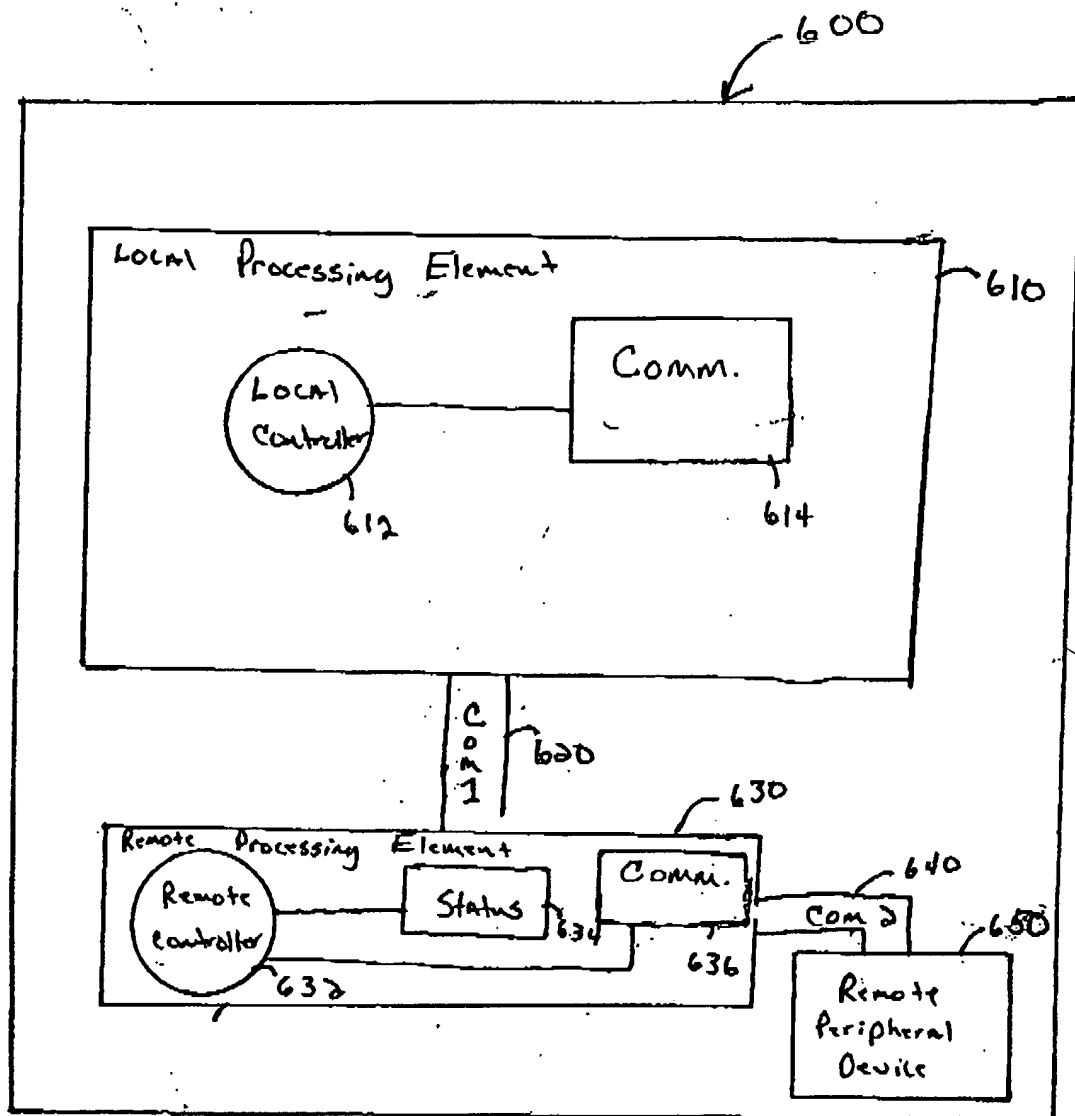 600
Local Processing Element
610
Local
Controller
612
Comm.
614
Com1
620
630
Remote Processing Element
Remote
Controller
632
Status
634
Comm.
636
640
Com 2
650
Remote
Peripheral
Device